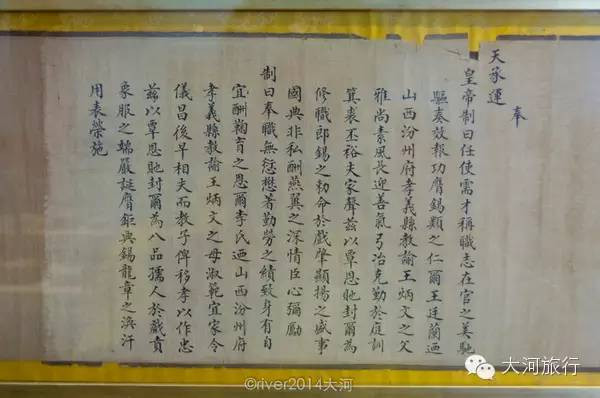 奉
天承運
皇帝制曰任使需才稱職志在官之美馳
驅奏效報功膺錫類之仁爾王廷蘭迺
山西汾州府孝義縣教諭王炳文之父
雅尚素風長迎善氣弓冶克勤於庭訓
箕裘丕裕夫家聲茲以覃恩貤封爾為
修職郎錫之勅命於戲肇顯揚之盛事
國典非私酬燕翼之深情臣心彌勵
制曰奉職無愆懋著勤勞之績致身有自
宜酬鞠育之恩爾李氏迺山西汾州府
孝義縣教諭王炳文之母淑範宜家令
儀昌後早相夫而教子俾移孝以作忠
茲以覃恩貤封爾為八品孺人於戲賁
象服之端嚴誕膺鉅典錫龍章之渙汗
用表榮施
大河旅行
©river2014大河